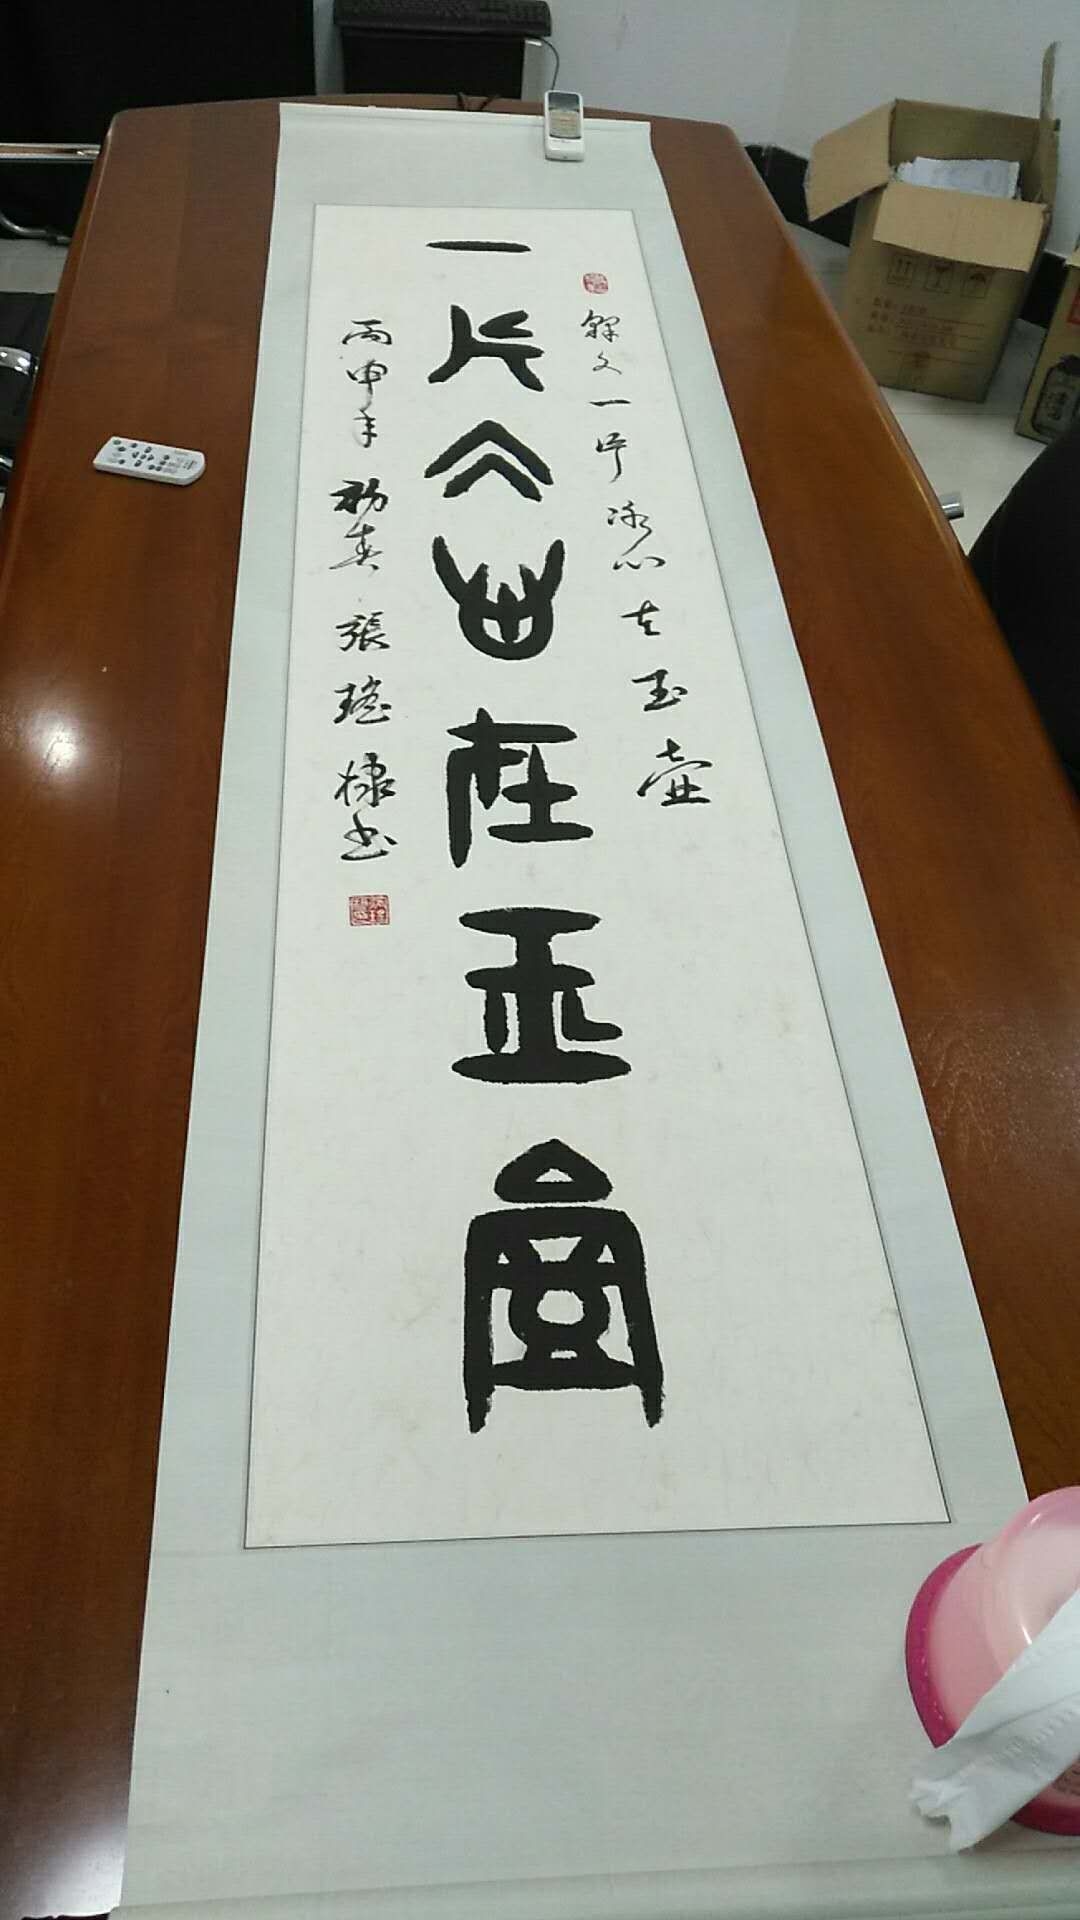 釋文一片冰心在玉壺
一片冰心在玉壺
丙申年初春張瑤棣书